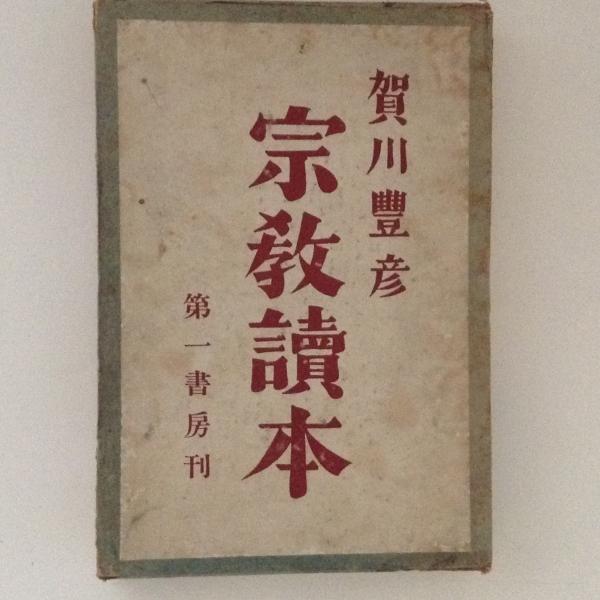 賀川豐彦
宗教讀本
第一書房刊